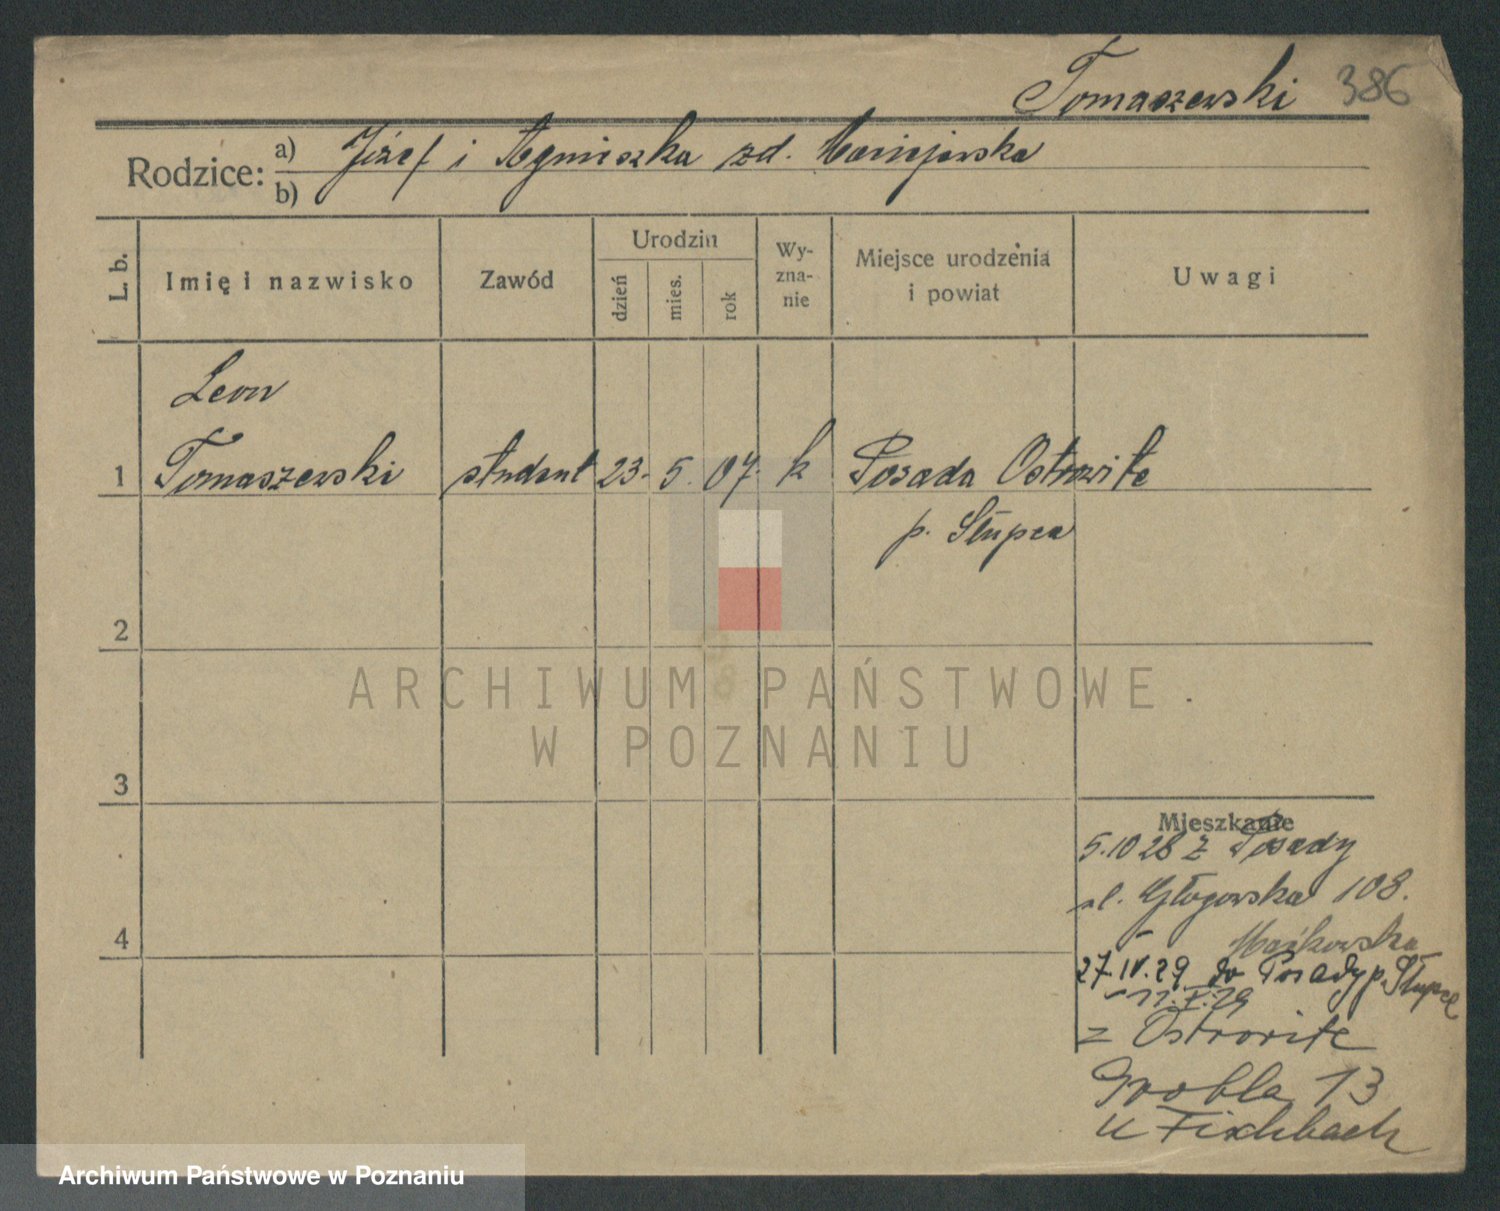 Tomaszewski 386
Rodzice: a) Józef i Agnieszka zd. Maciejewska
b)
L. b.
Imię i nazwisko
Zawód
Urodzin
dzień
mies.
rok
Wy-
zna-
nie
Miejsce urodzenia
i powiat
Uwagi
Leon
1 Tomaszewski student 23. 5. 07. k Posada Ostrowite
p. Słupca
2
3
4
ARCHIWUM PAŃSTWOWE
W POZNANIU
Mieszkanie
5.10 28 z Posady
ul. Głogowska 108.
Maćkowska
27.IV.29 do Posady p. Słupce
29
z Ostrowite
Grobla 13
u Fischbach
Archiwum Państwowe w Poznaniu